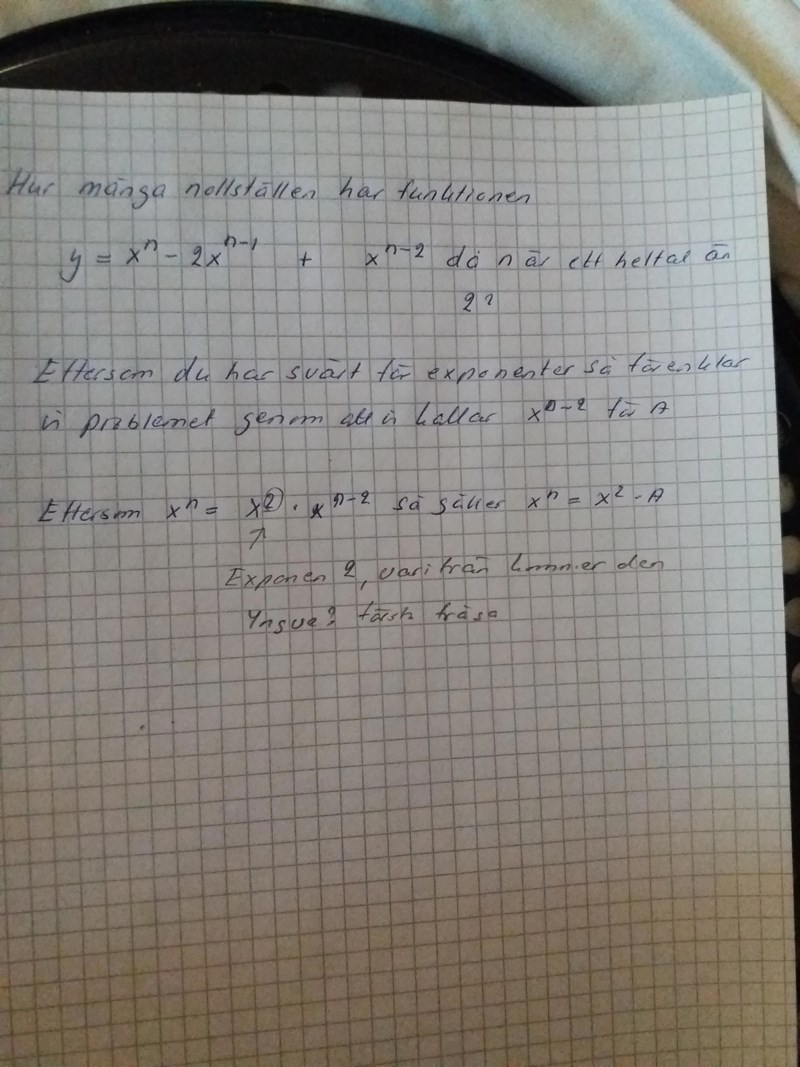 Hur många nollställen har funktionen
y = xⁿ - 2xⁿ⁻¹ + xⁿ⁻² då n är ett heltal än
2?
Eftersom du har svårt för exponenter så förenklar
vi problemet genom att vi kallar xⁿ⁻² för A
Eftersom xⁿ = x² · xⁿ⁻² så gäller xⁿ = x² · A
↑
Exponen 2, varifrån kommer den
Yngve? färsk fråga